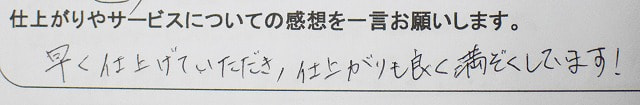 仕上がりやサービスについての感想を一言お願いします。
早く仕上げていただき,仕上がりも良く満ぞくしています!